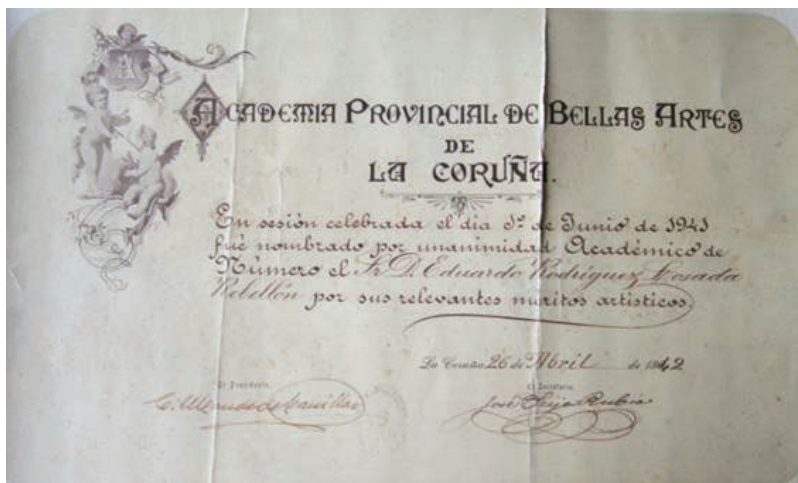 A
ACADEMIA PROVINCIAL DE BELLAS ARTES
DE
LA CORUÑA.
En sesión celebrada el día 1º de Junio de 1941
fué nombrado por unanimidad Académico de
Número el Sr. D. Eduardo Rodriguez Losada
Rebellón por sus relevantes meritos artisticos.
La Coruña 26 de Abril de 1942
El Presidente,
El Secretario,
José Seijo Rubio